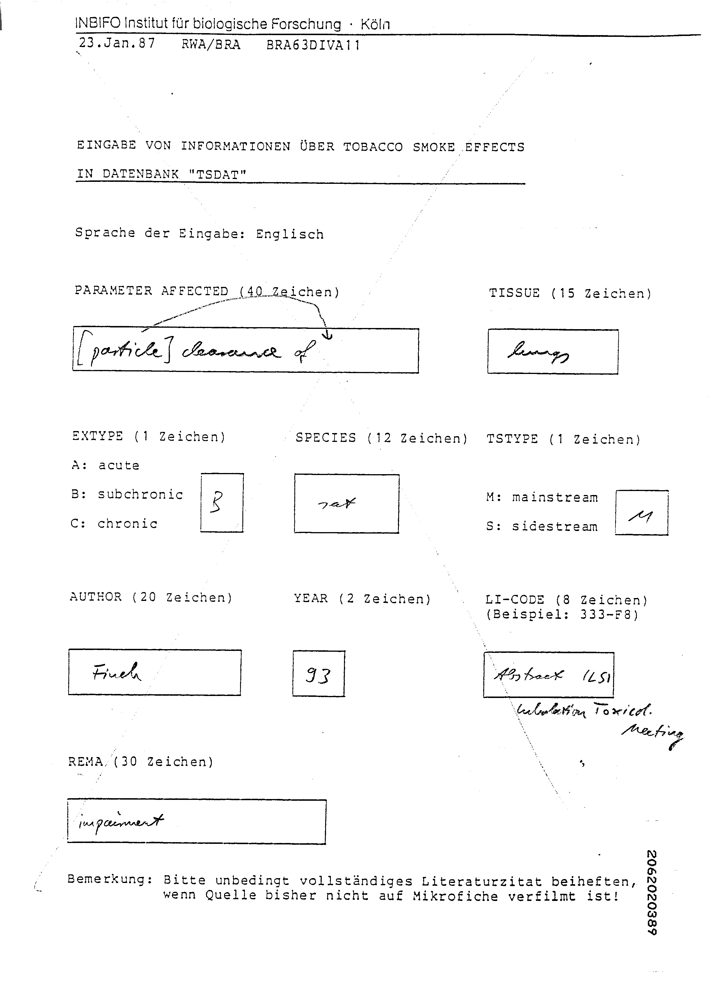 INBIFO Institut für biologische Forschung · Köln
23.Jan.87 RWA/BRA BRA63DIVA11
EINGABE VON INFORMATIONEN ÜBER TOBACCO SMOKE EFFECTS
IN DATENBANK "TSDAT"
Sprache der Eingabe: Englisch
PARAMETER AFFECTED (40 Zeichen) TISSUE (15 Zeichen)
[particle] clearance of lungs
EXTYPE (1 Zeichen) SPECIES (12 Zeichen) TSTYPE (1 Zeichen)
A: acute
B: subchronic B rat M: mainstream M
C: chronic S: sidestream
AUTHOR (20 Zeichen) YEAR (2 Zeichen) LI-CODE (8 Zeichen)
(Beispiel: 333-F8)
Finch 93 Abstract ILSI
Inhalation Toxicol.
Meeting
REMA (30 Zeichen)
impairment
Bemerkung: Bitte unbedingt vollständiges Literaturzitat beiheften,
wenn Quelle bisher nicht auf Mikrofiche verfilmt ist!
2062020389